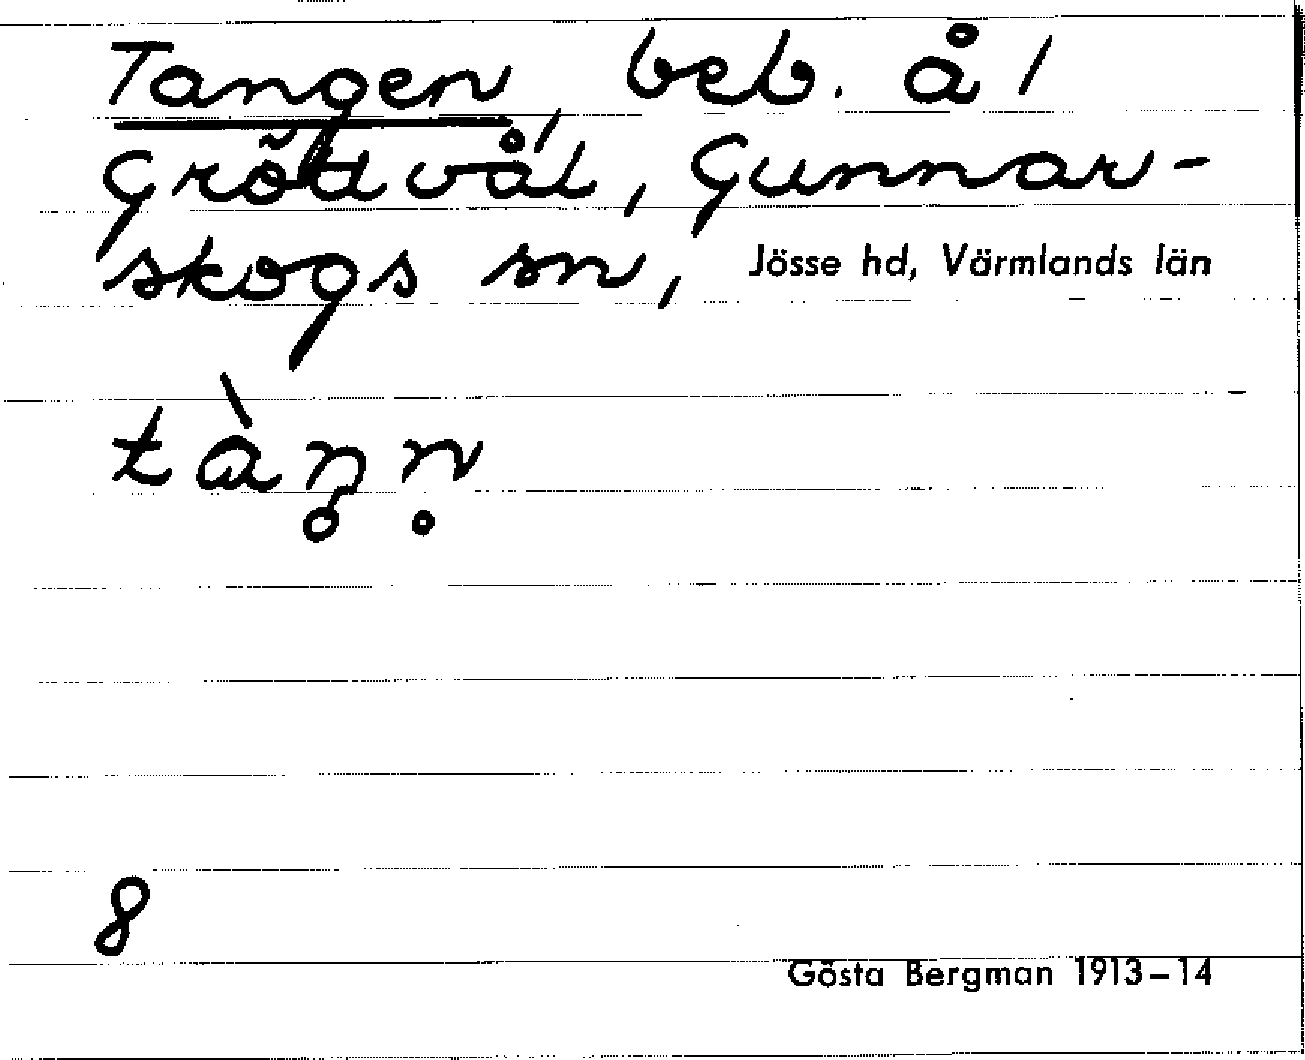 Tangen, beb. å 1
Grödvål, Gunnar-
skogs sn, Jösse hd, Värmlands län
tàŋn̥
8
Gösta Bergman 1913–14